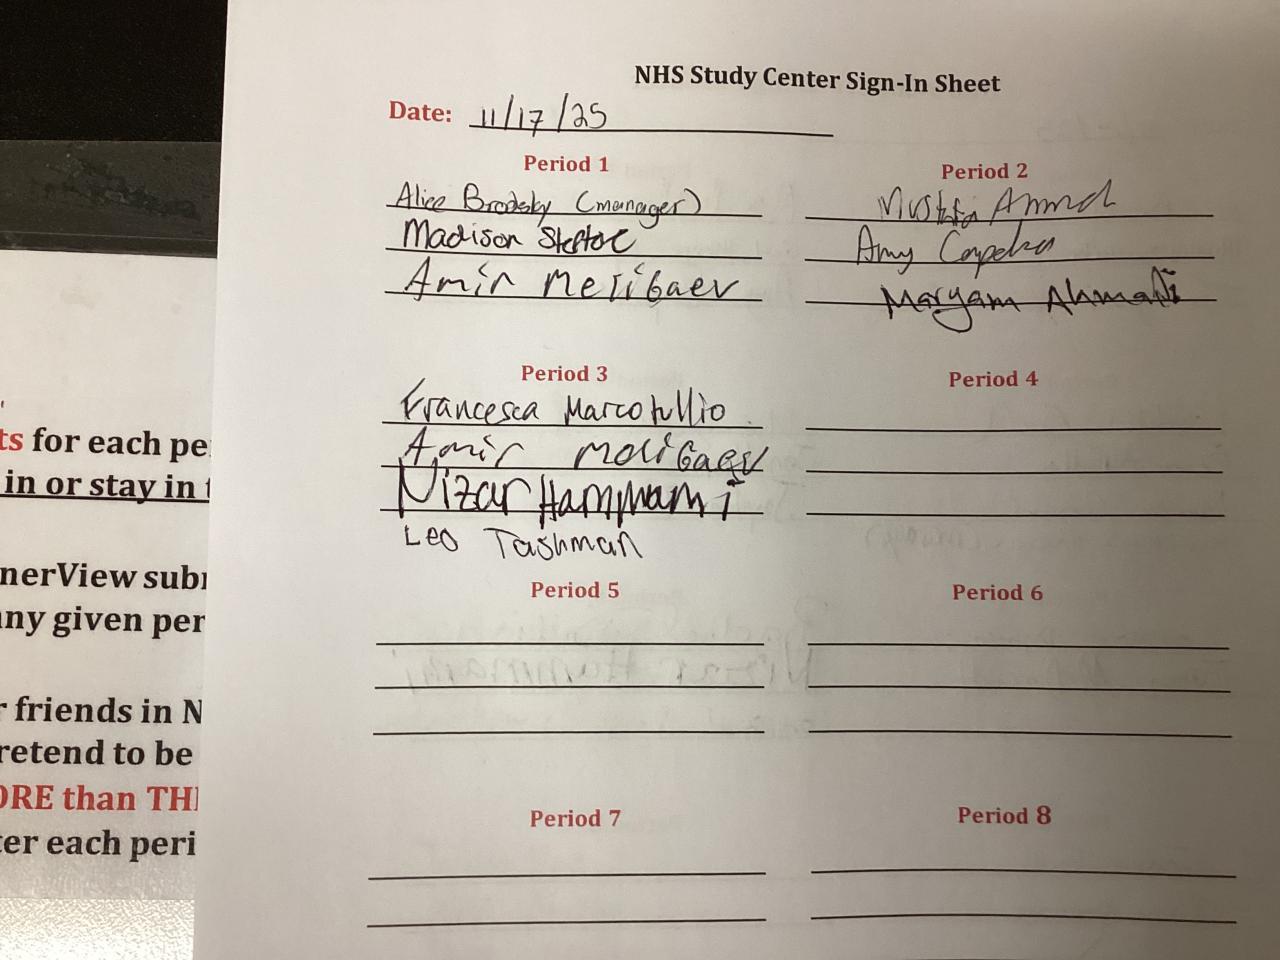 NHS Study Center Sign-In Sheet
Date: 11/17/25
Period 1
Alice Brodsky (manager)
Madison Steptoe
Amir Meligaev
Period 2
Mustafa Ahmed
Amy
Maryam Ahmadi
Period 3
Francesca Marcotullio
Amir Moligaev
Nizar Hammami
Leo Tashman
Period 4
Period 5
Period 6
Period 7
Period 8
ts for each pe
in or stay in t
nerView subm
any given per
r friends in N
retend to be
ORE than THI
ter each peri